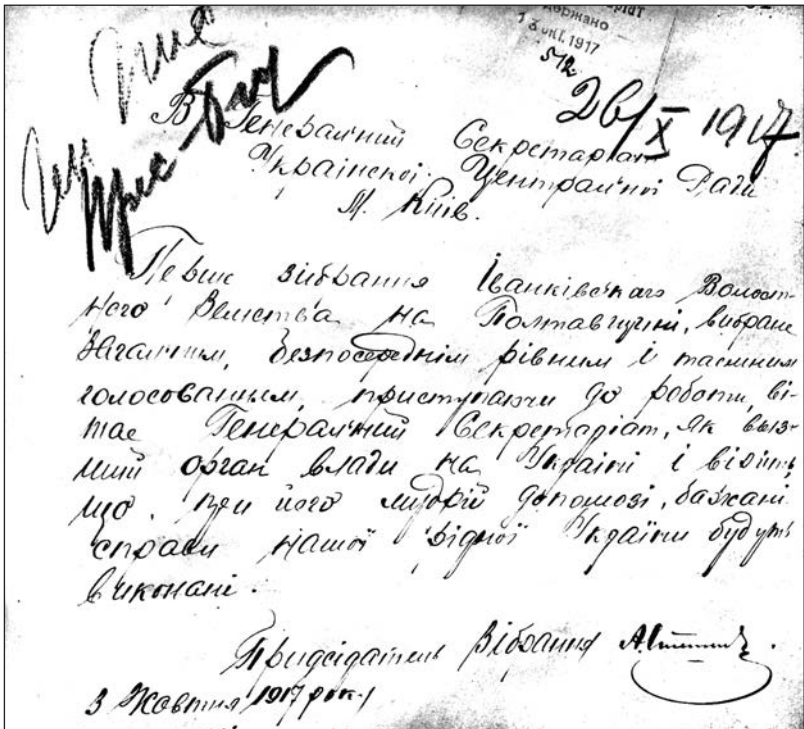 держано
1917
512
26/X 1917
В Генеральний Секретаріат
Української Центральної Ради
М. Київ.
Перше зібрання Іванківского Волост-
ного Земства на Полтавщині, вибране
загальним, безпосереднім рівним і таємним
голосованьем, приступаючи до роботи, ві-
тае Генеральний Секретаріат, як висз-
ший орган влади на Україні і вірить,
що при його мудрій допомозі, бажані
справи нашої рідної України будуть
виконані.
Придсідатель Зібрання
3 Жовтня 1917 року